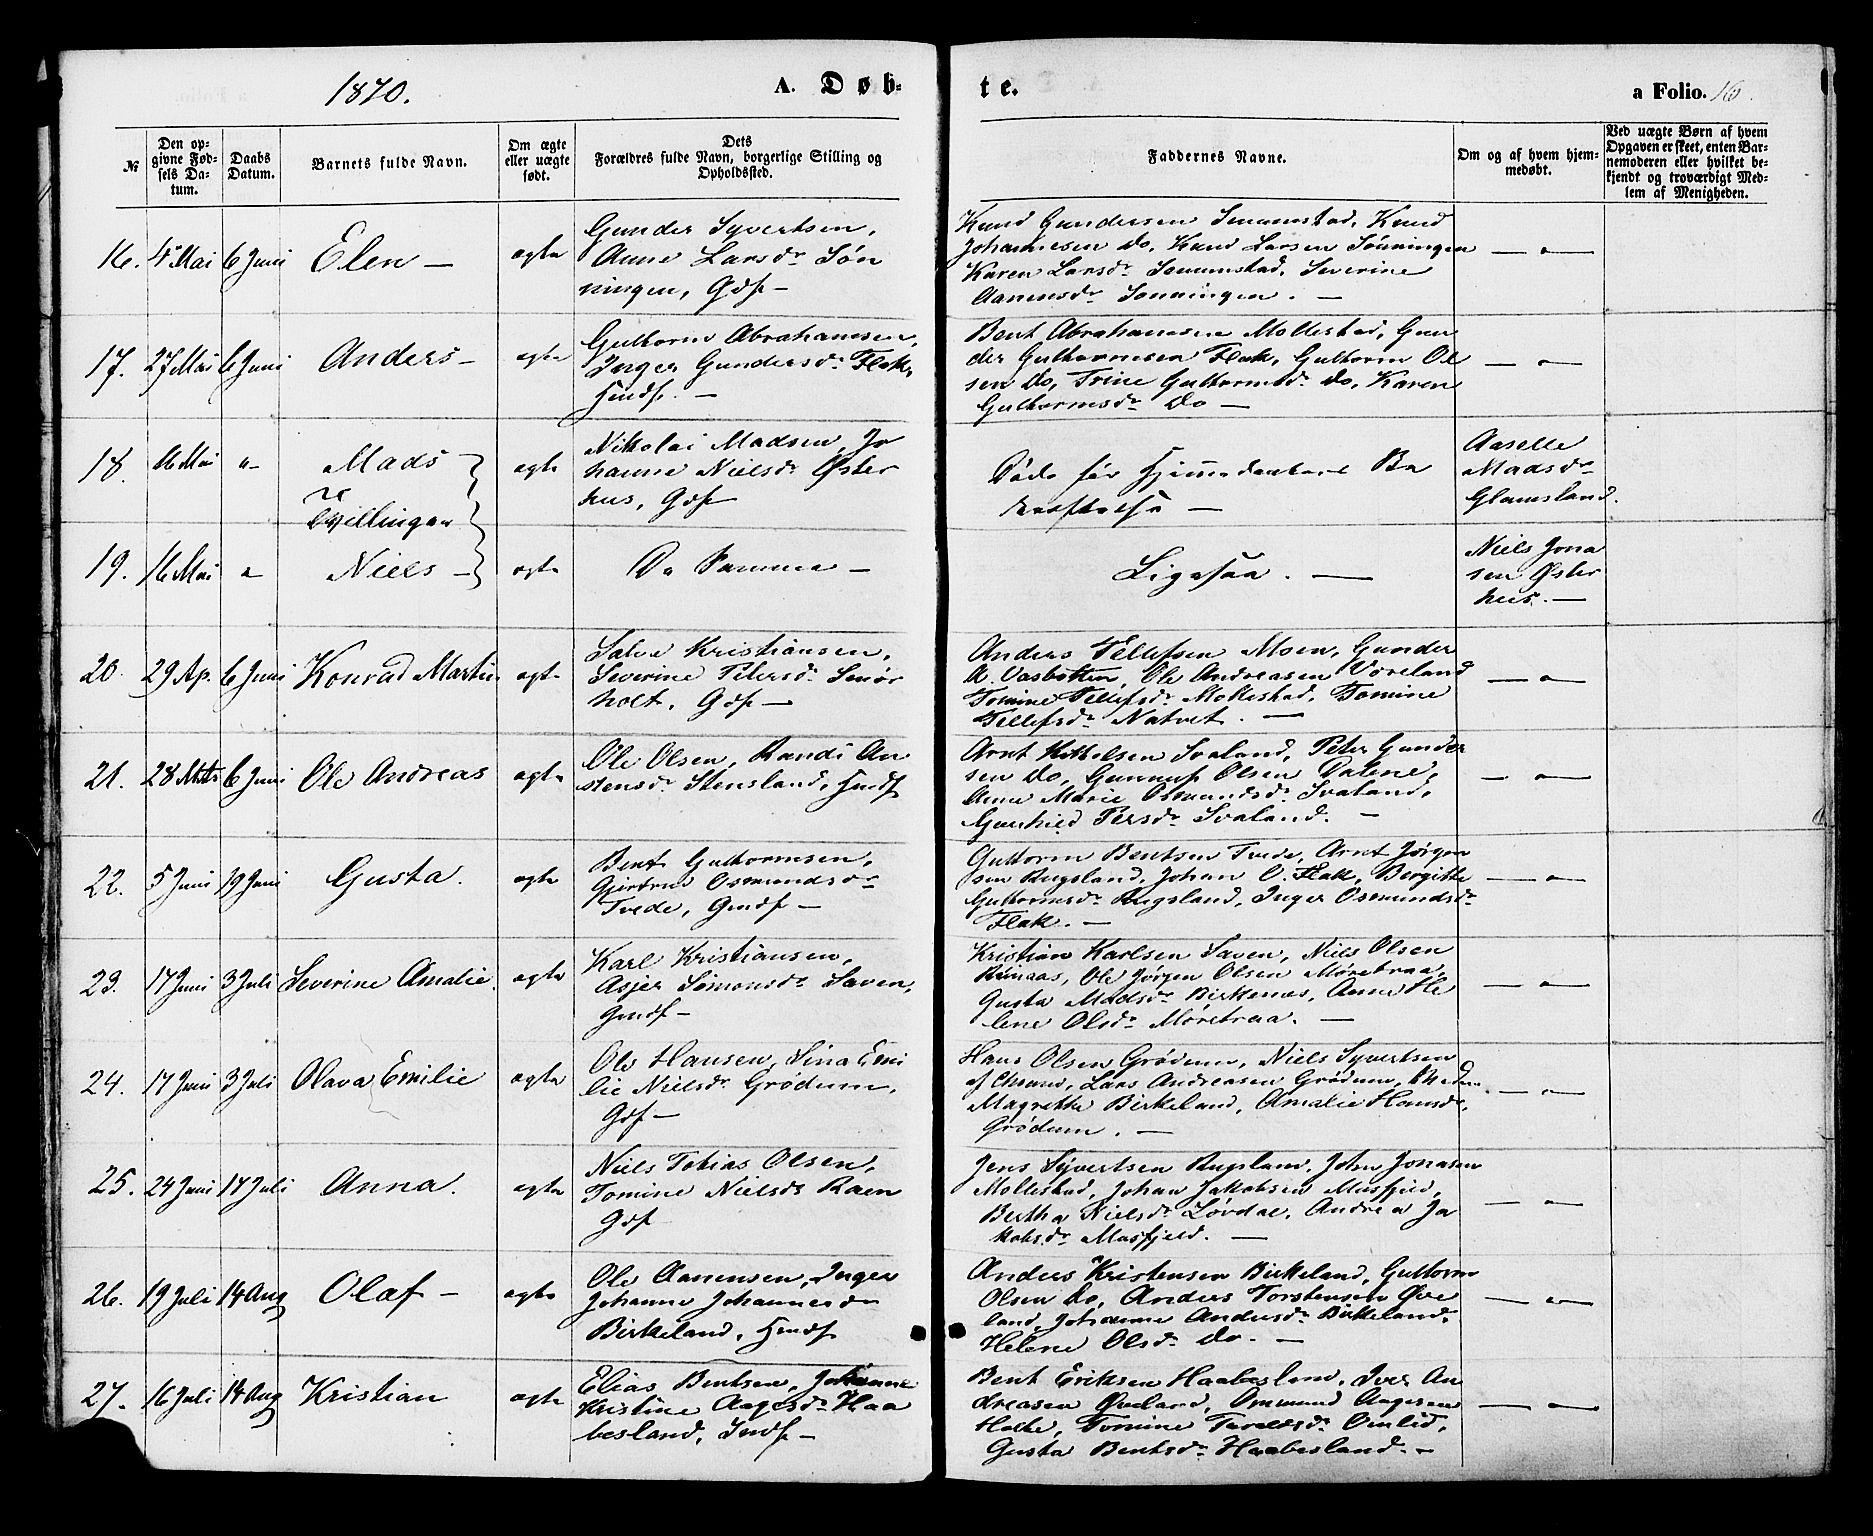 1870.
A. Døb-
te.
a Folio. 16.
№
Den op-
givne Fød-
sels Da-
tum.
Daabs
Datum.
Barnets fulde Navn.
Om ægte
eller uægte
født.
Dets
Forældres fulde Navn, borgerlige Stilling og
Opholdssted.
Faddernes Navne.
Om og af hvem hjem-
medøbt.
Ved uægte Børn af hvem
Opgaven er skeet, enten Bar-
nemoderen eller hvilket be-
kjendt og troværdigt Med-
lem af Menigheden.
16. Mai 6 Juni Elen – ægte
Gunder Syvertsen,
Anne Larsdr Søn
ningen, Gdf –
Knud Gundersen Senumstad, Knud
Johannesen Do, Knud Larsen Sønningen
Karen Larsdr Senumstad, Severine
Aanensdr Sonningen. –
— „ —
17. 27 Mai 6 Juni Anders – ægte
Guttorm Abrahamsen,
Inger Gundersdr Flak,
Hmdf. –
Bent Abrahamsen Mollestad, Gun
der Guttormsen Flak, Guttorm Ol
sen Do, Trine Guttormsdr Do, Karen
Guttormsdr Do –
— „ —
18. 16 Mai „ Mads ægte
Tvillinger
Nikolai Madsen, Jo
hanne Nielsdr Øster
hus, Gdf
Døde før Hjemmedaabens Be
kræftelse –
Aaselle
Madsdr
Glamsland.
19. 16 Mai „ Niels – ægte
De Samme –
Ligesaa. —
Niels Jona
sen Øster
hus. –
20. 29 Ap. 6 Juni Konrad Martin ægte
Salve Kristiansen,
Severine Petersdr Smør
holt, Gdf –
Anders Tellefsen Moen, Gunder
A. Vasbotten, Ole Andreasen Væveland
Tomine Tellefsdr Mollestad, Tomine
Tellefsdr Natvet. –
— „ —
21. 28 6 Juni Ole Andreas ægte
Ole Olsen, Randi An
stensdr Stensland, Hmdf
Arnt Kittelsen Svaland, Peter Gunder
sen Do, Olsen Dalene,
Anne Marie Osmundsdr Svaland,
Gunhild Persdr Svaland. –
— „ —
22. 5 Juni 19 Juni Gusta. ægte
Bent Guttormsen,
Gjertrud Osmundsdr
Tvede, Gmdf –
Guttorm Bentsen Tvede, Arnt Jørgen
sen Rugsland, Johan O. Flak, Bergitte
Guttormsdr Rugsland, Inger Osmundsdr
Flak. –
— „ —
23. 17 Juni 3 Juli Severine Amalie. ægte
Karl Kristiansen,
Asjer Simonsdr Saven,
Gmdf –
Kristian Karlsen Saven, Niels Olsen
Rinaas, Ole Jørgen Olsen Møretraa,
Gusta Madsdr Birkenes, Anne He
lene Olsdr Møretraa. –
— „ —
24. 17 Juni 3 Juli Olava Emilie ægte
Ole Hansen, Sina Emi
lie Nielsdr Grødum,
Gdf –
Hans Olsen Grødum, Niels Syvertsen
af Chrsand, Lars Andreasen Grødum,
Magrethe Birkeland, Amalie Hansdr
Grødum. –
— „ —
25. 24 Juni 17 Juli Anna. ægte
Niels Tobias Olsen,
Tomine Nielsdr Raen
Gdf
Jens Syvertsen Rugsland, John Jonasen
Mollestad, Johan Jakobsen Masfjeld,
Bertha Nielsdr Lørdal, Andrea Ja
kobsdr Masfjeld. –
— „ —
26. 19 Juli 14 Aug Olaf – ægte
Ole Aanensen, Inger
Johanne Johannesdr
Birkeland, Hmdf
Anders Kristensen Birkeland, Guttorm
Olsen Do, Anders Torstensen Øve
land, Johanne Andersdr Birkeland,
Helene Olsdr Do. –
— „ —
27. 16 Juli 14 Aug Kristian ægte
Elias Bentsen, Johanne
Kristine Aagesdr Haa
besland, Indf –
Bent Eriksen Haabesland, Iver An
dreasen Øveland, Ommund Aagesen
Tomine Omlid,
Gusta Bentsdr Haabesland. –
— „ —